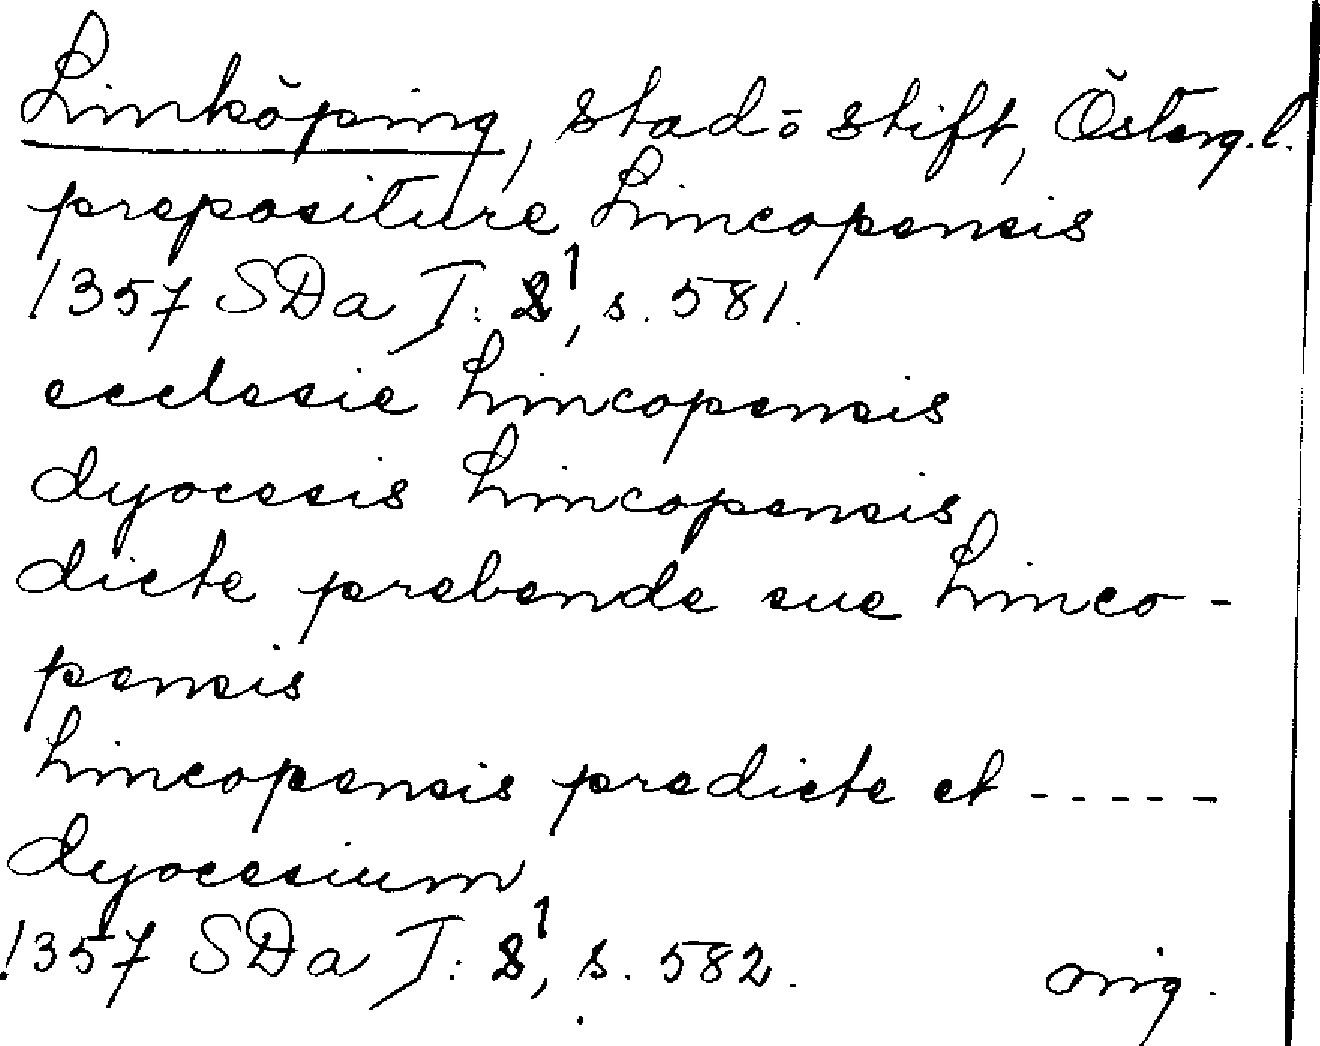 Linköping, stad o stift, Österg.l.
prepositure Lincopensis
1357 SDa I: 1, s. 581.
ecclesie Lincopensis
dyocesis Lincopensis,
dicte prebende sue Linco-
pensis
Lincopensis predicte et -----
dyocesium
1357 SDa I: 1, s. 582. orig.